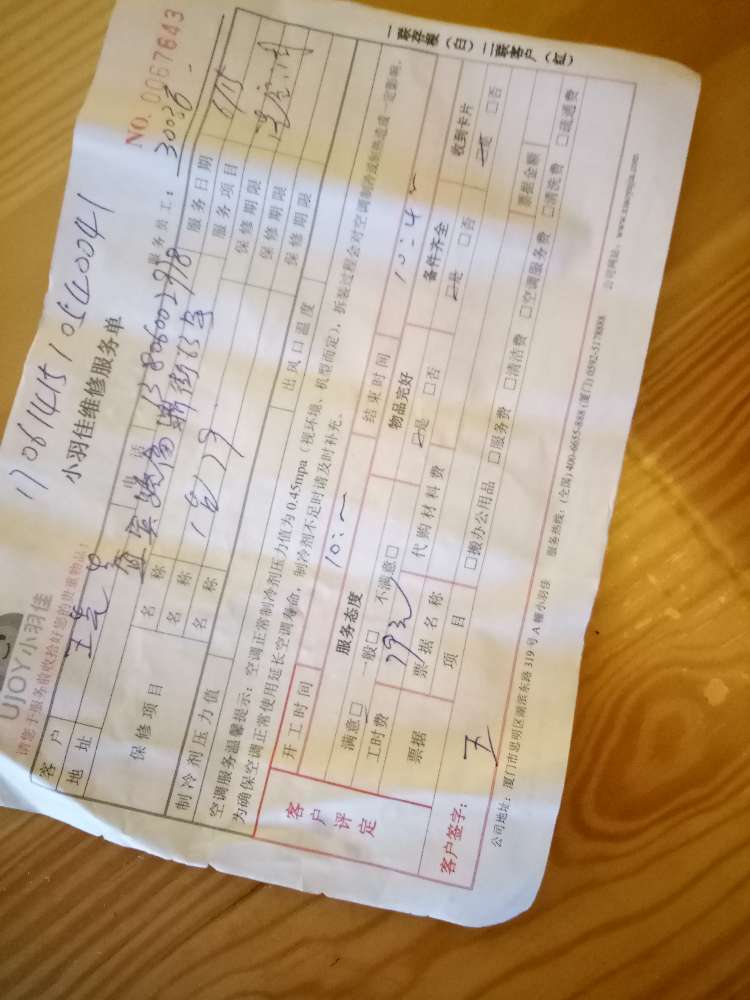 UJOY小羽佳
请您于服务前收拾好您的贵重物品!
小羽佳维修服务单
NO. 0067643
服务员工: 30036
客户 电话 服务日期
地址 服务项目
保修项目 名称 保修期限
名称 保修期限
名称 保修期限
制冷剂压力值 出风口温度
空调服务温馨提示: 空调正常制冷剂压力值为 0.45mpa (视环境、机型而定), 拆装过程会对空调制冷或制热造成一定影响,
为确保空调正常使用延长空调寿命, 制冷剂不足时请及时补充。
客户评定
开工时间 结束时间
服务态度 物品完好 备件齐全 收到卡片
满意□ 一般□ 不满意□ □是 □否 □是 □否 □是 □否
工时费 代购材料费
票据 票据名称 票据金额
项目 □搬办公用品 □服务费 □清洁费 □空调服务费 □清洗费 □疏通费
客户签字: 王
公司地址: 厦门市思明区湖滨东路 319 号 A 幢小羽佳 服务热线: (全国) 400-6655-888 (厦门) 0592-5178888 公司网站: www.xiaoyujia.com
一联存根 (白) 二联客户 (红)